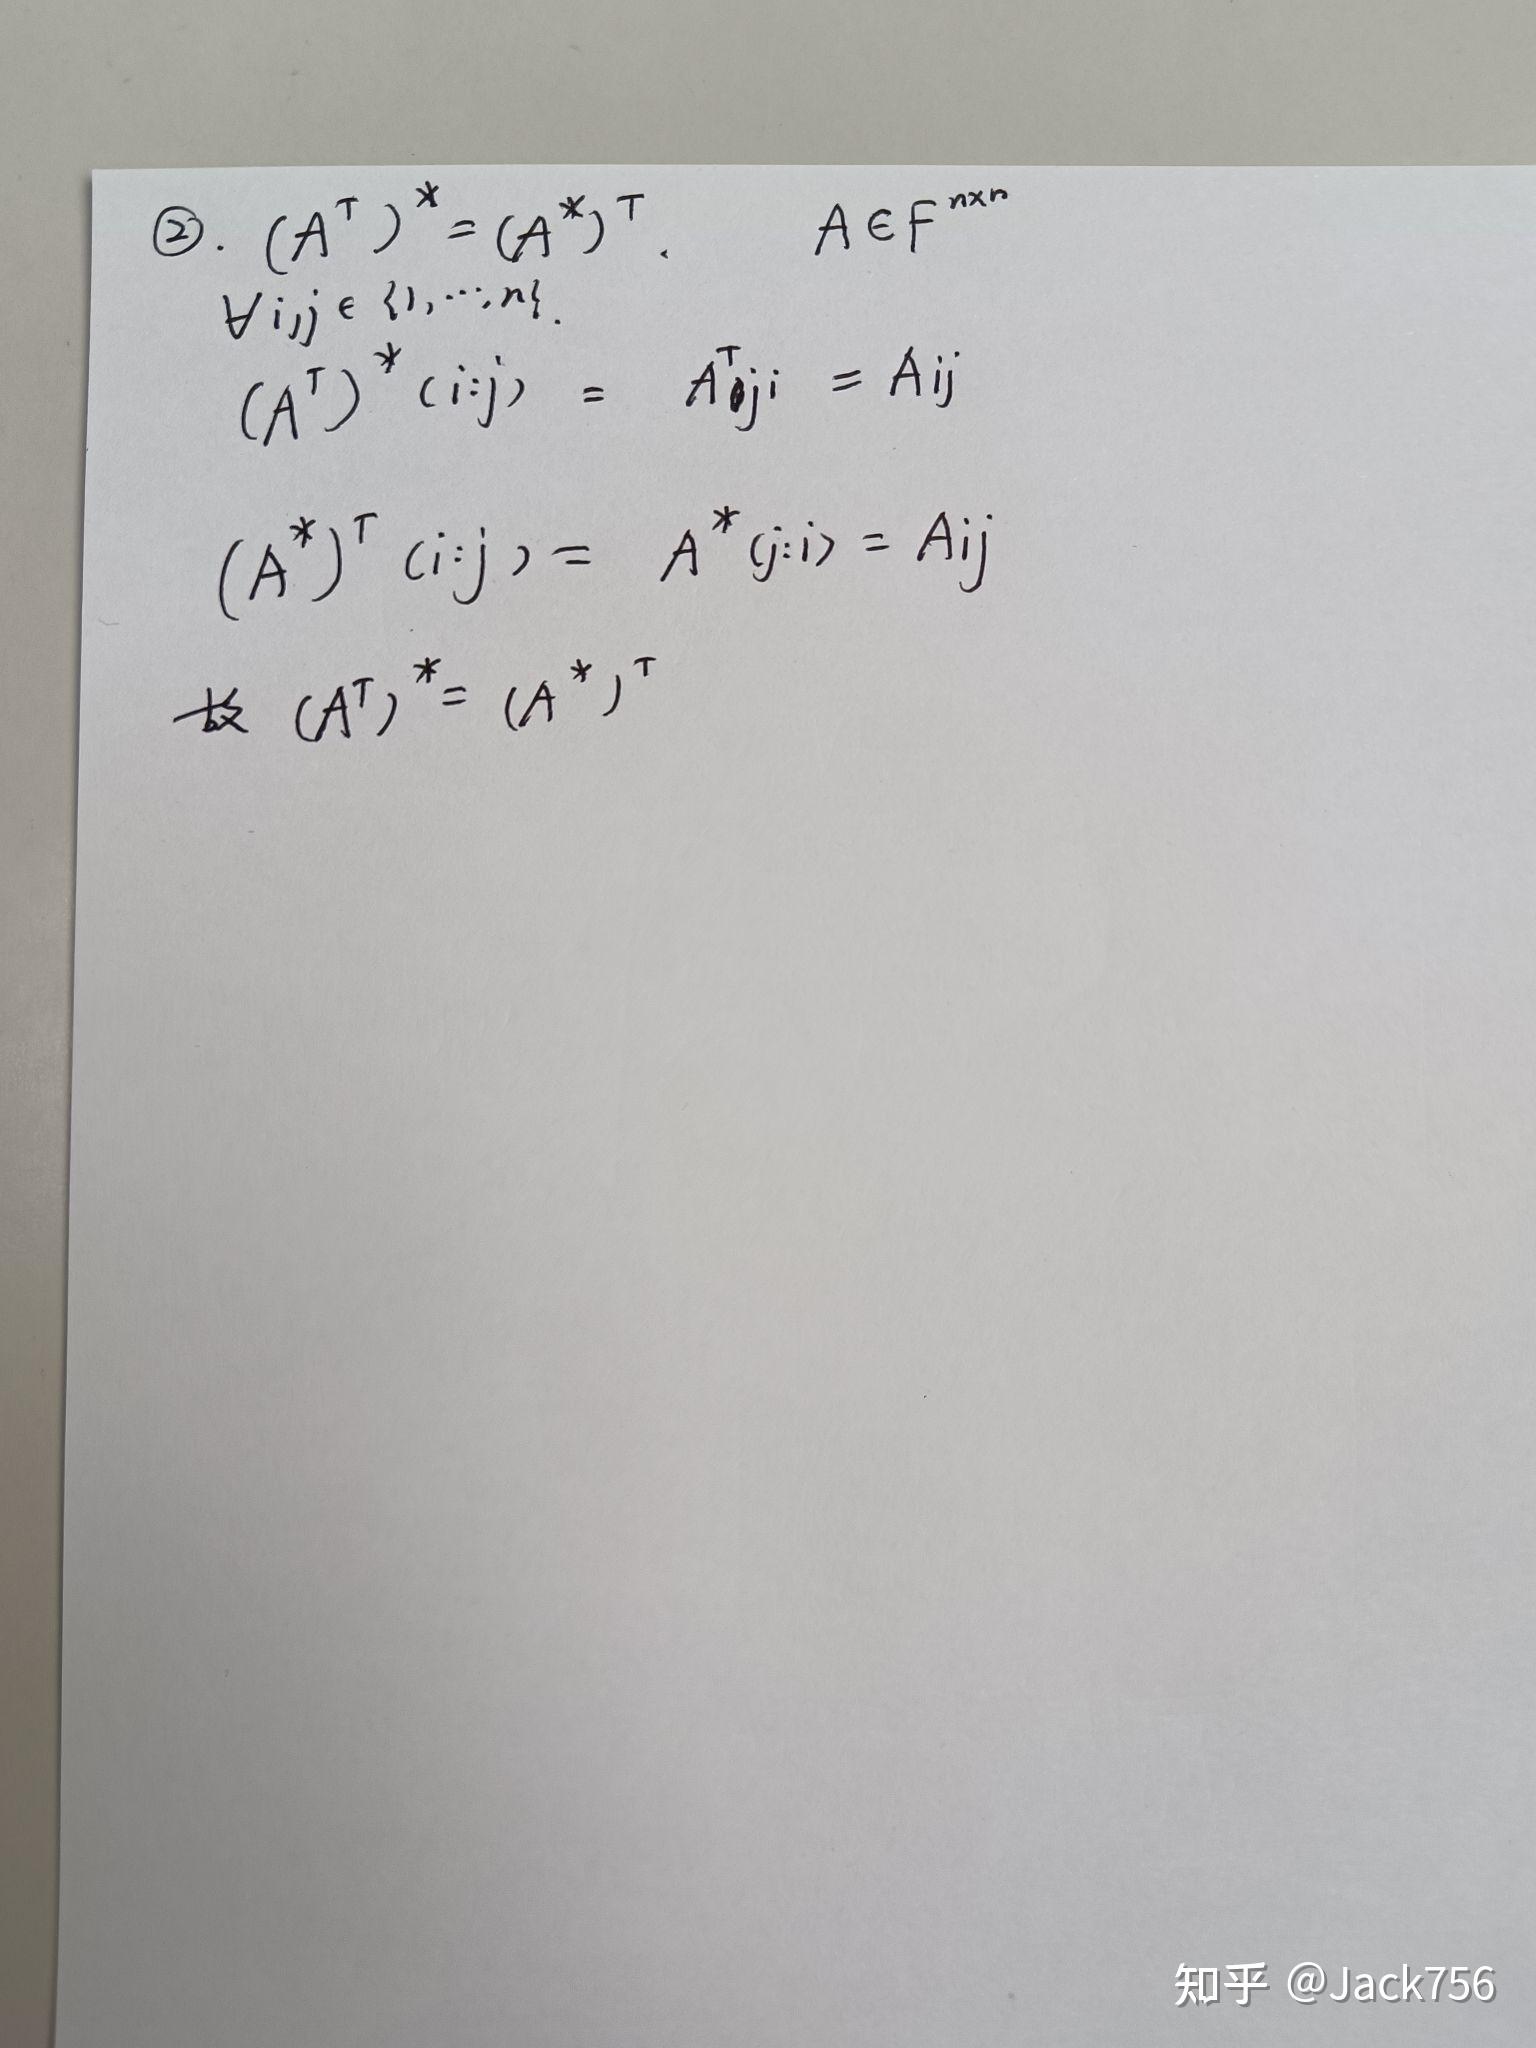 ②. (Aᵀ)* = (A*)ᵀ. A∈Fⁿˣⁿ
∀i,j∈{1,…,n}.
(Aᵀ)*(i:j) = Aᵀji = Aij
(A*)ᵀ(i:j) = A*(j:i) = Aij
故 (Aᵀ)* = (A*)ᵀ
知乎 @Jack756